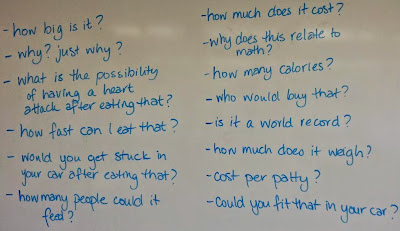 - how big is it?
- why? just why?
- what is the possibility
of having a heart
attack after eating that?
- how fast can I eat that?
- would you get stuck in
your car after eating that?
- how many people could it
feed?
- how much does it cost?
- why does this relate to
math?
- how many calories?
- who would buy that?
- is it a world record?
- how much does it weigh?
- cost per patty?
- Could you fit that in your car?